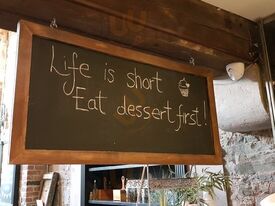 Life is short
Eat dessert first!